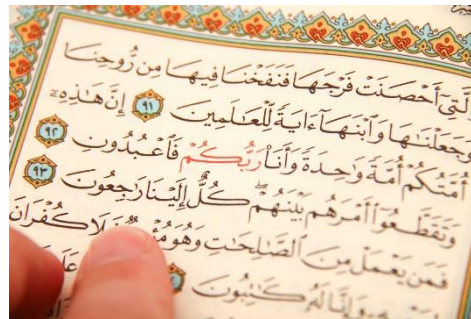 لَّتِىٓ أَحْصَنَتْ فَرْجَهَا فَنَفَخْنَا فِيهَا مِن رُّوحِنَا
وَجَعَلْنَـٰهَا وَٱبْنَهَآ ءَايَةً لِّلْعَـٰلَمِينَ ٩١ إِنَّ هَـٰذِهِۦٓ
أُمَّتُكُمْ أُمَّةً وَٰحِدَةً وَأَنَا۠ رَبُّكُمْ فَٱعْبُدُونِ ٩٢
وَتَقَطَّعُوٓا۟ أَمْرَهُم بَيْنَهُمْ ۖ كُلٌّ إِلَيْنَا رَٰجِعُونَ ٩٣
فَمَن يَعْمَلْ مِنَ ٱلصَّـٰلِحَـٰتِ وَهُوَ فَلَا كُفْرَانَ
وَإِنَّا لَهُۥ كَـٰتِبُونَ